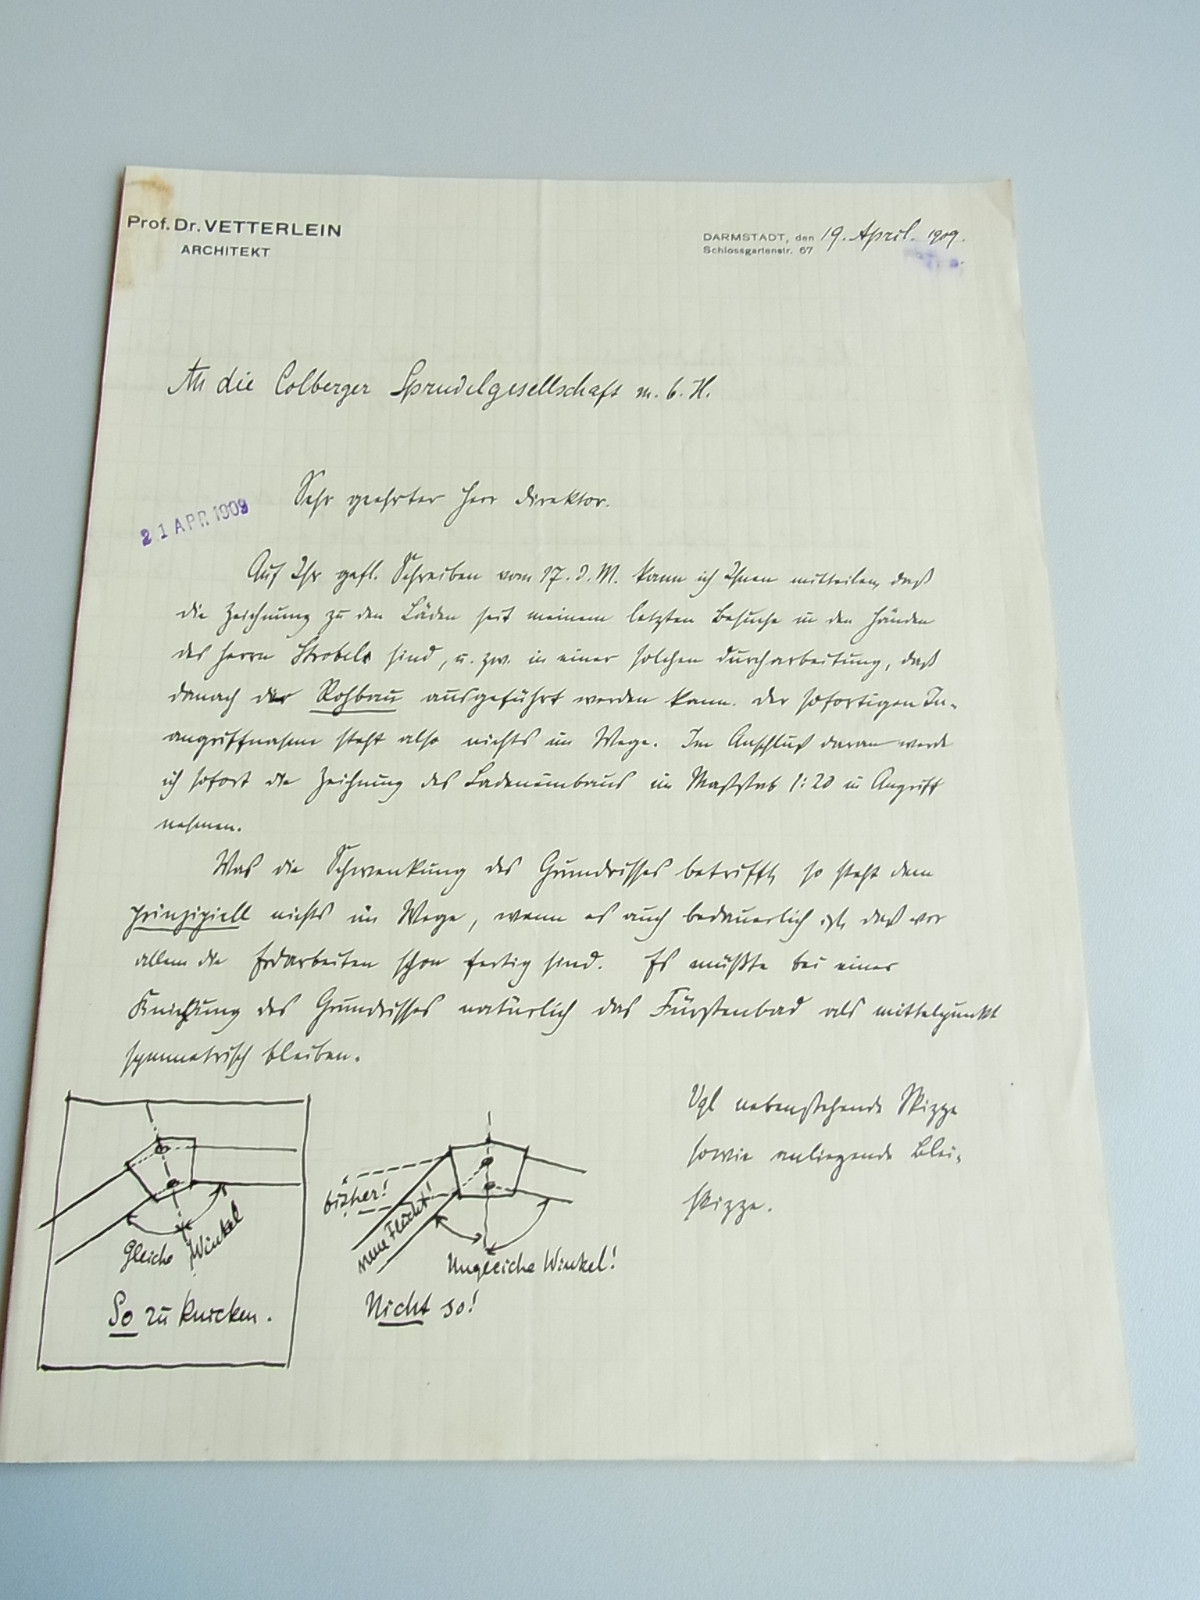 Prof. Dr. VETTERLEIN
ARCHITEKT
DARMSTADT, den 19. April. 1909.
Schlossgartenstr. 67
An die Colberger Sprudelgesellschaft m. b. H.
21 APR. 1909
Sehr geehrter Herr Direktor.
Auf Ihr gefl. Schreiben vom 17. d. M. kann ich Ihnen mitteilen, daß
die Zeichnung zu den Läden seit meinem letzten Besuche in den Händen
des Herrn Strobel sind, u. zw. in einer solchen Durcharbeitung, daß
danach der Rohbau ausgeführt werden kann. Der sofortigen In-
angriffnahme steht also nichts im Wege. Im Anschluß daran werde
ich sofort die Zeichnung des Ladeneinbaus im Maßstab 1:20 in Angriff
nehmen.
Was die Schwenkung des Grundrisses betrifft, so steht dem
prinzipiell nichts im Wege, wenn es auch bedauerlich ist, daß vor
allem die Erdarbeiten schon fertig sind. Es müßte bei einer
Knickung des Grundrisses natürlich das Fürstenbad als Mittelpunkt
symmetrisch bleiben.
Vgl nebenstehende Skizze
sowie anliegende Blei-
skizze.
Gleiche Winkel
So zu knicken.
bisher!
neue Flucht!
Ungleiche Winkel!
Nicht so!